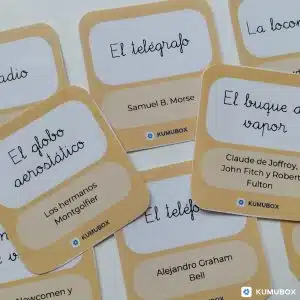 El telégrafo
Samuel B. Morse
KUMUBOX
La
El globo
aerostático
Los hermanos
Montgolfier
KUMUBOX
El buque
vapor
Claude de Joffroy,
John Fitch y Robert
Fulton
KUMUBOX
El
Alejandro Graham
Bell
y
KUMUBOX